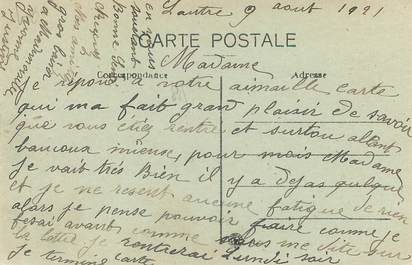 Lautre 9 aout 1921
CARTE POSTALE
Correspondance
Adresse
Madame
je répond a votre aimaille carte
qui ma fait grand plaisir de savoir
que vous étiez rentre et surtou allant
beaucoux mieuse, pour mois Madame
je vait trés Bien il y a dejas quelque
et je ne resent aucune fatigue de rien
alors je pense pouvoir faire comme je
fesai avant comme
je rentrerai Lundi soir
je termine carte
en vous
souhaitant
Bonne
gros baisé